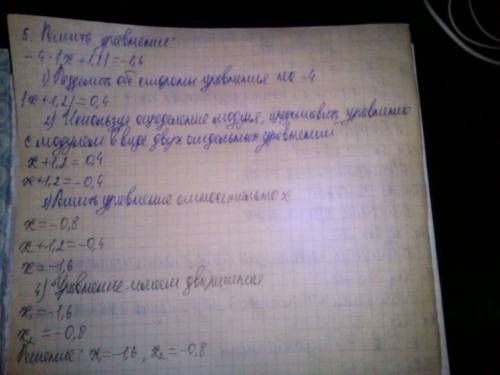 5. Решить уравнение:
-4·|x+1,2|=-1,6
1) Разделить обе стороны уравнения на -4
|x+1,2|=0,4
2) Используя определение модуля, уравнение
с модулем в виде двух отдельных уравнений
x+1,2=0,4
x+1,2=-0,4
3) Решить уравнение относительно x
x=-0,8
x+1,2=-0,4
x=-1,6
4) Уравнение имеет два
x₁=-1,6
x₂=-0,8
Решение: x=-1,6, x₂=-0,8